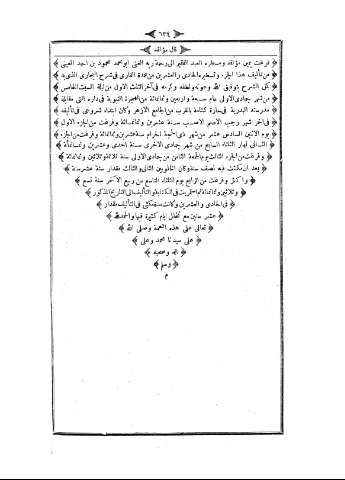 ﴿ ٦٣٩ ﴾
﴿ قال مؤلفه ﴾
﴿ فرغت يمين مؤلفه ومسطره العبد الفقير الى رحمة ربه الغنى ابو محمد محمود بن احمد العينى ﴾
﴿ من تأليف هذا الجزء وتسطيره الحادى والعشرين من عمدة القارى فى شرح البخارى الذى به ﴾
﴿ كمل الشرح بتوفيق الله وعونه ولطفه وكرمه فى آخر الثلث الاول من ليلة السبت الخامس ﴾
﴿ من شهر جمادى الاولى عام سبعة واربعين وثمانمائة من الهجرة النبوية فى داره التى مقابلة ﴾
﴿ مدرسته البدرية فى حارة كتامة بالقرب من الجامع الازهر وكان ابتداء شروعى فى تأليفه ﴾
﴿ فى آخر شهر رجب الاصم الاصب سنة عشرين وثمانمائة وفرغت من الجزء الاول ﴾
﴿ يوم الاثنين السادس عشر من شهر ذى الحجة الحرام سنة عشرين وثمانمائة وفرغت من الجزء ﴾
﴿ الثانى نهار الثلثاء السابع من شهر جمادى الاخرى سنة احدى وعشرين وثمانمائة ﴾
﴿ وفرغت من الجزء الثالث يوم الجمعة الثامن من جمادى الاولى سنة ثلاث وثلاثين وثمانمائة ﴾
﴿ بعد ان مكثت فيه نصف سنة وكان الخلو بين الثانى والثالث مقدار ستة عشر سنة ﴾
﴿ واكثر وفرغت من الرابع يوم الثلثاء التاسع من ربيع الآخر سنة تسع ﴾
﴿ وثلاثين وثمانمائة ثم استمريت فى الكتابة والتأليف الى التاريخ المذكور ﴾
﴿ فى الحادى والعشرين وكانت مدة مكثى فى التأليف مقدار ﴾
﴿ عشر سنين مع تخلل ايام كثيرة فيها والحمد لله ﴾
﴿ تعالى على هذه النعمة وصلى الله ﴾
﴿ على سيدنا محمد وعلى ﴾
﴿ آله وصحبه ﴾
﴿ وسلم ﴾
م